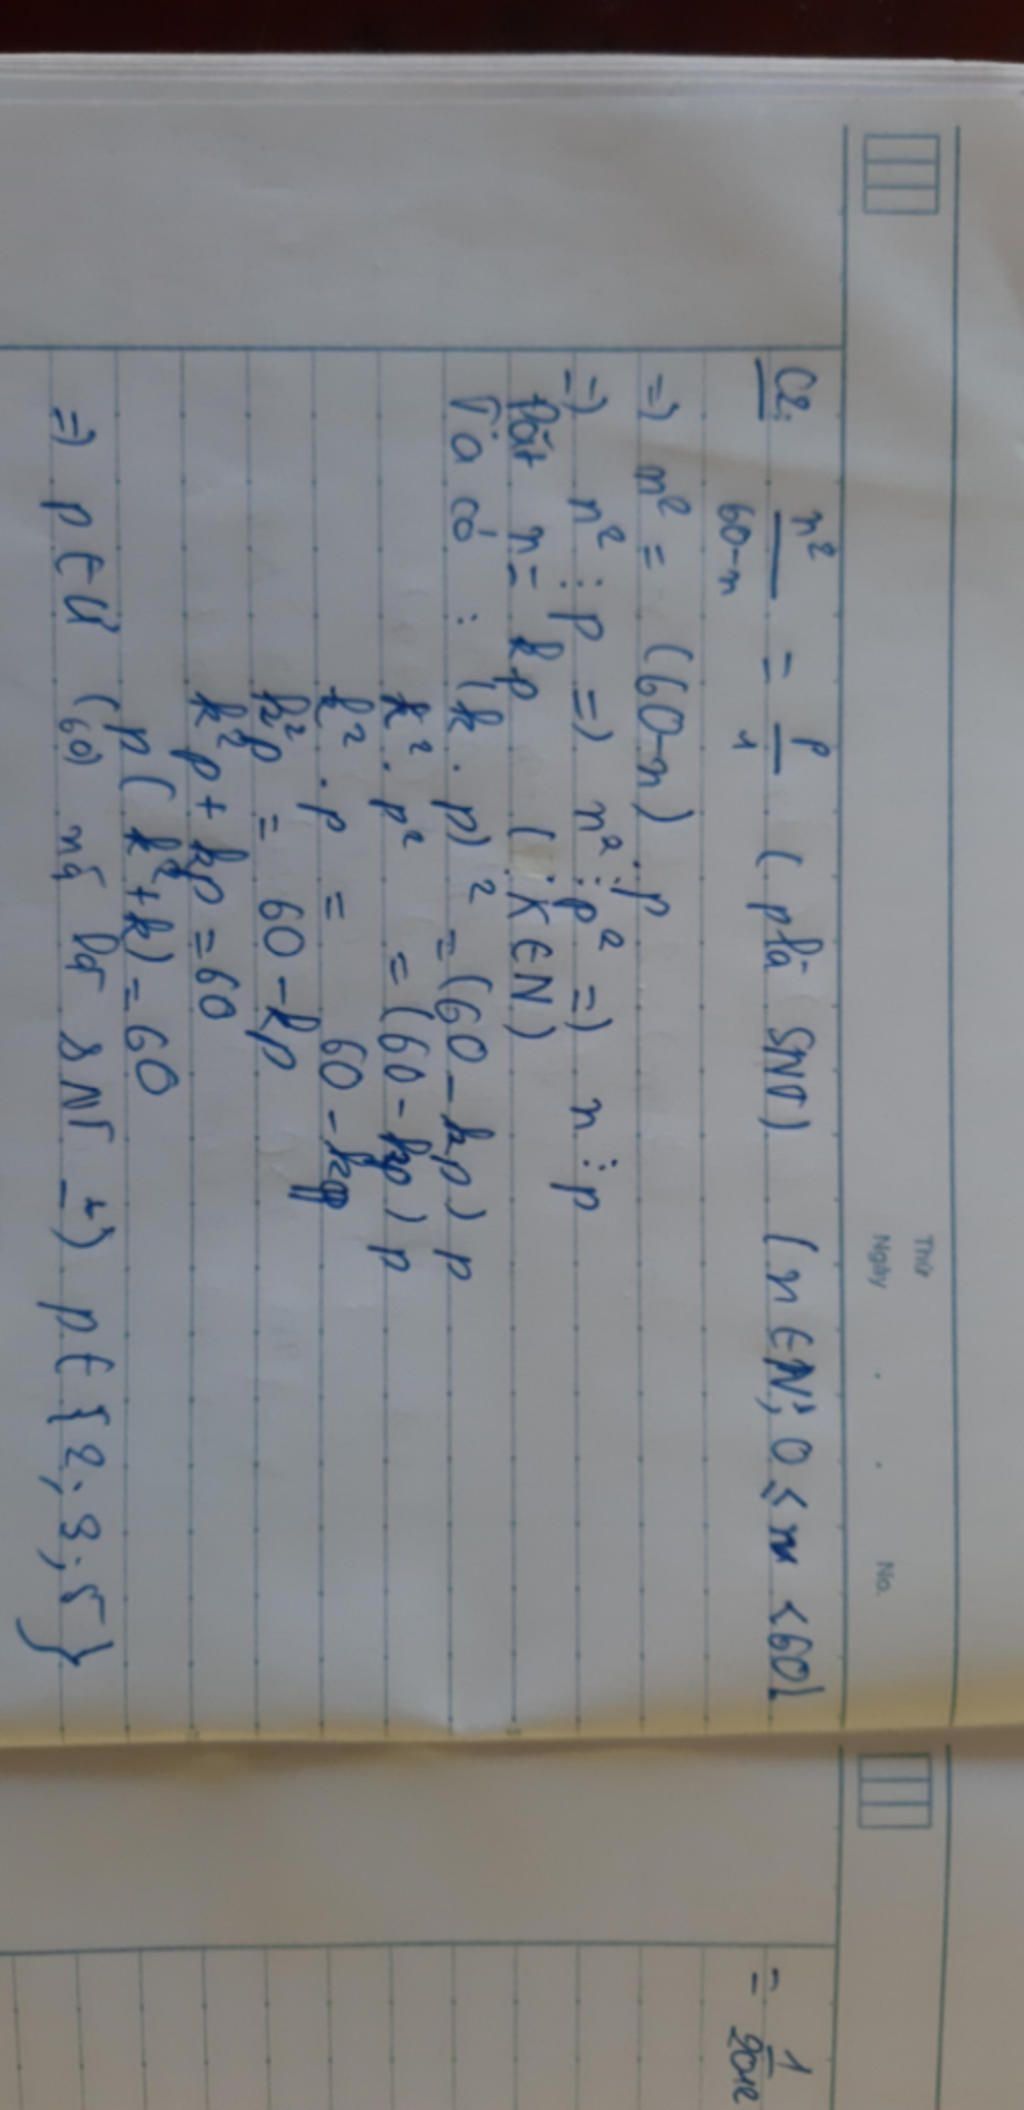 Thứ
Ngày . . No.
C2: n²/60-n = p/1 ( p là SNT) (n ∈ N; 0 ≤ n < 60)
=) n² = (60-n).p
=) n² ⋮ p =) n² ⋮ p² =) n ⋮ p
Đặt n = kp (K ∈ N)
Ta có : (k . p)² = (60 - kp) p
k² . p² = (60 - kp) p
k² . p = 60 - kp
k²p = 60 - kp
k²p + kp = 60
p(k²+k) = 60
=) p ∈ Ư (60) mà là SNT =) p ∈ {2; 3; 5}
= 1/2012